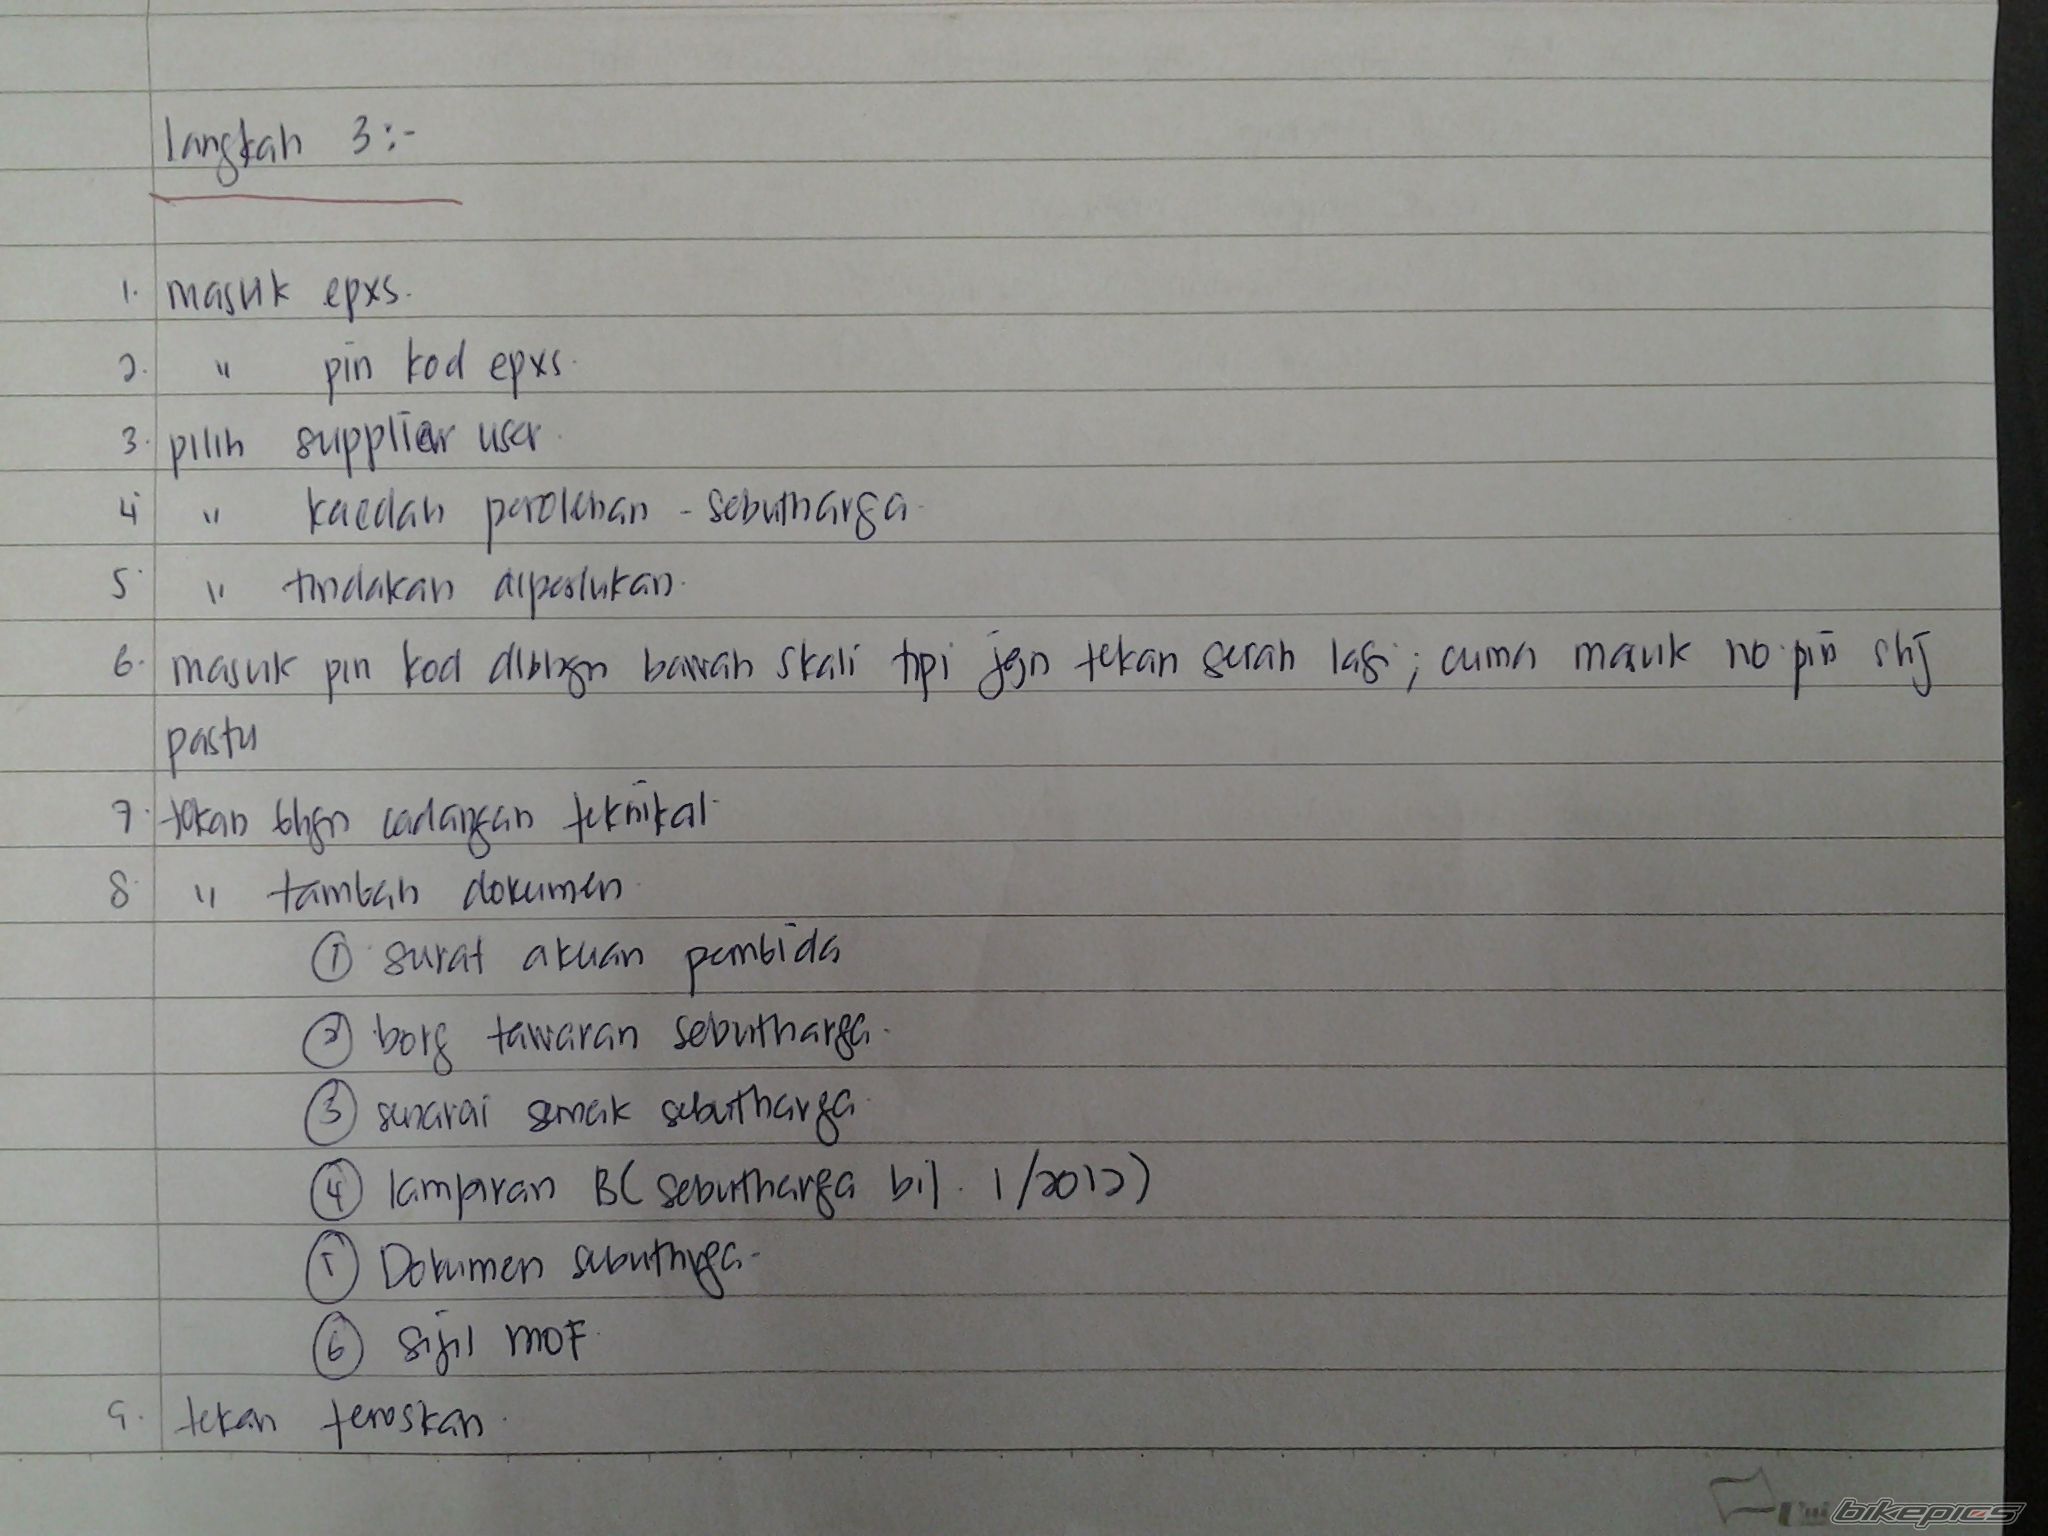 langkah 3:-
1. masuk epxs.
2. " pin kod epxs.
3. pilih supplier user.
4 " kaedah perolehan - sebutharga.
5. " tindakan diperlukan.
6. masuk pin kod dibhgn bawah skali tipi jgn tekan serah lagi; cuma masuk no.pin shj
pastu
7. tekan bhgn cadangan teknikal.
8. " tambah dokumen.
① surat akuan pembida
② borg tawaran sebutharga.
③ senarai semak sebutharga.
④ lampiran B (sebutharga bil. 1/2012)
⑤ Dokumen sebuthrga.
⑥ sijil MOF.
9. tekan teruskan.
bikepics